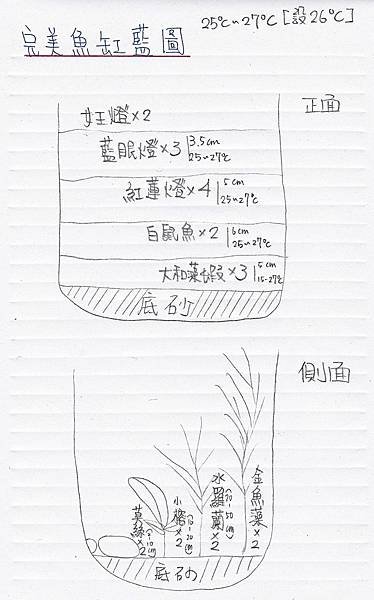 完美魚缸藍圖
25℃~27℃[設26℃]
正面
女王燈×2
藍眼燈×3 3.5cm 25~27℃
紅蓮燈×4 5cm 25~27℃
白鼠魚×2 6cm 25~27℃
大和藻蝦×3 5cm 15~27℃
底砂
側面
莫絲×2 (5~10cm)
小榕×2 (10~20cm)
水羅蘭×2 (20~50cm)
金魚藻×2
底砂